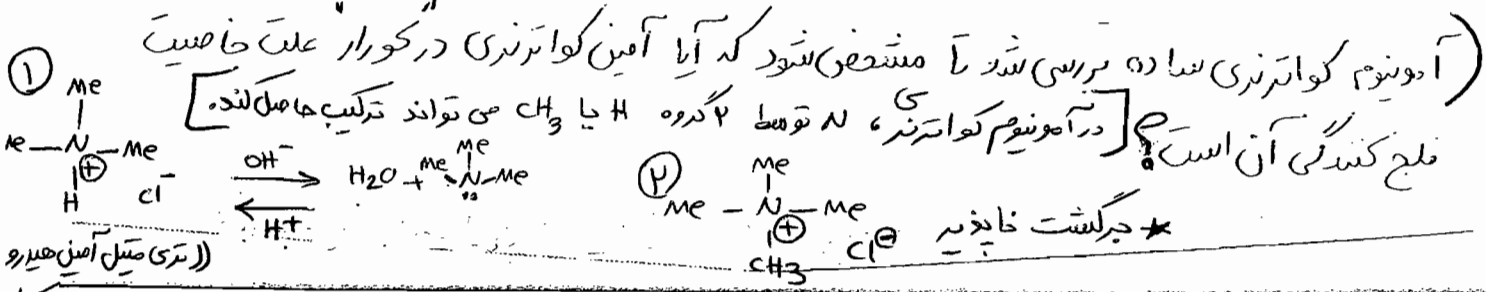 (آمونیوم کواترنری ساده بررسی شد تا مشخص شود که آیا آمین کواترنری در "کورار" علت خاصیت
فلج کنندگی آن است؟ [در آمونیوم کواترنری، N توسط ۴ گروه H یا CH3 می تواند ترکیب حاصل کند.]
①
Me
Me—N—Me
⊕
H
Cl⁻
OH⁻
H⁺
H2O + Me
Me
N—Me
②
Me
Me — N — Me
⊕
CH3
Cl⊖
* برگشت ناپذیر
((تری متیل آمین هیدرو